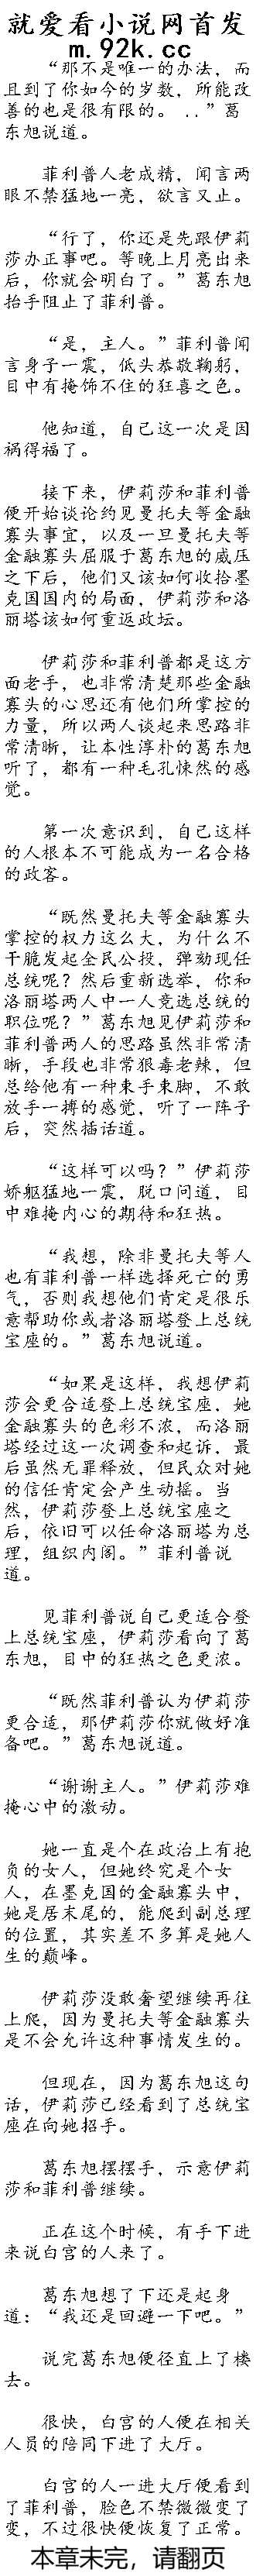 就爱看小说网首发
m.92k.cc
“那不是唯一的办法，而
且到了你如今的岁数，所能改
善的也是很有限的。 ..”葛
东旭说道。
菲利普人老成精，闻言两
眼不禁猛地一亮，欲言又止。
“行了，你还是先跟伊莉
莎办正事吧。等晚上月亮出来
后，你就会明白了。”葛东旭
抬手阻止了菲利普。
“是，主人。”菲利普闻
言身子一震，低头恭敬鞠躬，
目中有掩饰不住的狂喜之色。
他知道，自己这一次是因
祸得福了。
接下来，伊莉莎和菲利普
便开始谈论约见曼托夫等金融
寡头事宜，以及一旦曼托夫等
金融寡头屈服于葛东旭的威压
之下后，他们又该如何收拾墨
克国国内的局面，伊莉莎和洛
丽塔该如何重返政坛。
伊莉莎和菲利普都是这方
面老手，也非常清楚那些金融
寡头的心思还有他们所掌控的
力量，所以两人谈起来思路非
常清晰，让本性淳朴的葛东旭
听了，都有一种毛孔悚然的感
觉。
第一次意识到，自己这样
的人根本不可能成为一名合格
的政客。
“既然曼托夫等金融寡头
掌控的权力这么大，为什么不
干脆发起全民公投，弹劾现任
总统呢？然后重新选举，你和
洛丽塔两人中一人竞选总统的
职位呢？”葛东旭见伊莉莎和
菲利普两人的思路虽然非常清
晰，手段也非常狠毒老辣，但
总给他有一种束手束脚，不敢
放手一搏的感觉，听了一阵子
后，突然插话道。
“这样可以吗？”伊莉莎
娇躯猛地一震，脱口问道，目
中难掩内心的期待和狂热。
“我想，除非曼托夫等人
也有菲利普一样选择死亡的勇
气，否则我想他们肯定是很乐
意帮助你或者洛丽塔登上总统
宝座的。”葛东旭说道。
“如果是这样，我想伊莉
莎会更合适登上总统宝座，她
金融寡头的色彩不浓，而洛丽
塔经过这一次调查和起诉，最
后虽然无罪释放，但民众对她
的信任肯定会产生动摇。当
然，伊莉莎登上总统宝座之
后，依旧可以任命洛丽塔为总
理，组织内阁。”菲利普说
道。
见菲利普说自己更适合登
上总统宝座，伊莉莎看向了葛
东旭，目中的狂热之色更浓。
“既然菲利普认为伊莉莎
更合适，那伊莉莎你就做好准
备吧。”葛东旭说道。
“谢谢主人。”伊莉莎难
掩心中的激动。
她一直是个在政治上有抱
负的女人，但她终究是个女
人，在墨克国的金融寡头中，
她是居末尾的，能爬到副总理
的位置，其实差不多算是她人
生的巅峰。
伊莉莎没敢奢望继续再往
上爬，因为曼托夫等金融寡头
是不会允许这种事情发生的。
但现在，因为葛东旭这句
话，伊莉莎已经看到了总统宝
座在向她招手。
葛东旭摆摆手，示意伊莉
莎和菲利普继续。
正在这个时候，有手下进
来说白宫的人来了。
葛东旭想了下还是起身
道：“我还是回避一下吧。”
说完葛东旭便径直上了楼
去。
很快，白宫的人便在相关
人员的陪同下进了大厅。
白宫的人一进大厅便看到
了菲利普，脸色不禁微微变了
变，不过很快便恢复了正常。
本章未完，请翻页